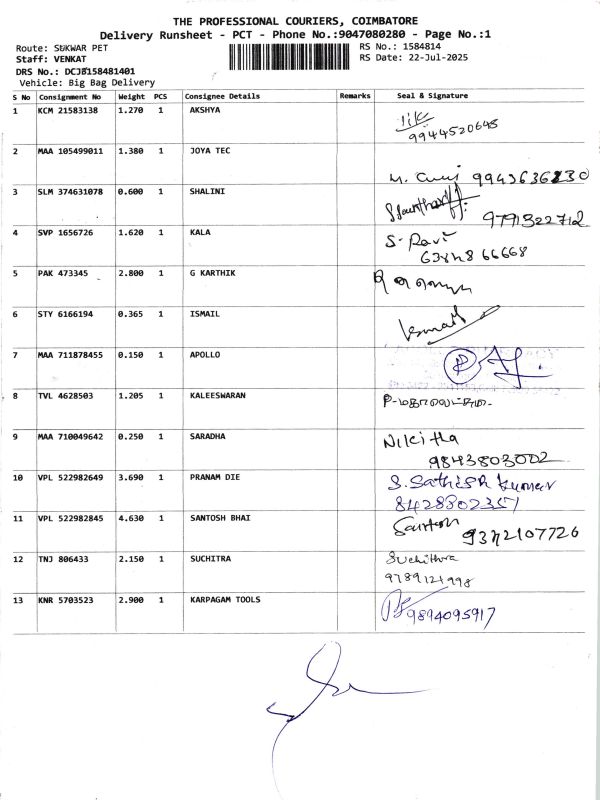 THE PROFESSIONAL COURIERS, COIMBATORE
Delivery Runsheet - PCT - Phone No.:9047080280 - Page No.:1
Route: SUKWAR PET
RS No.: 1584814
Staff: VENKAT
RS Date: 22-Jul-2025
DRS No.: DCJB158481401
Vehicle: Big Bag Delivery
S No Consignment No Weight PCS Consignee Details Remarks Seal & Signature
1 KCM 21583138 1.270 1 AKSHYA
9944520648
2 MAA 105499011 1.380 1 JOYA TEC
9943636830
3 SLM 374631078 0.600 1 SHALINI
9791322712
4 SVP 1656726 1.620 1 KALA S. Ravi
6384866668
5 PAK 473345 2.800 1 G KARTHIK
6 STY 6166194 0.365 1 ISMAIL Ismail
7 MAA 711878455 0.150 1 APOLLO
8 TVL 4628503 1.205 1 KALEESWARAN
9 MAA 710049642 0.250 1 SARADHA Nikitha
9843803002
10 VPL 522982649 3.690 1 PRANAM DIE S. Sathish kumar
8428802357
11 VPL 522982845 4.630 1 SANTOSH BHAI Santosh
9372107726
12 TNJ 806433 2.150 1 SUCHITRA Suchithra
9789121998
13 KNR 5703523 2.900 1 KARPAGAM TOOLS 9894095917